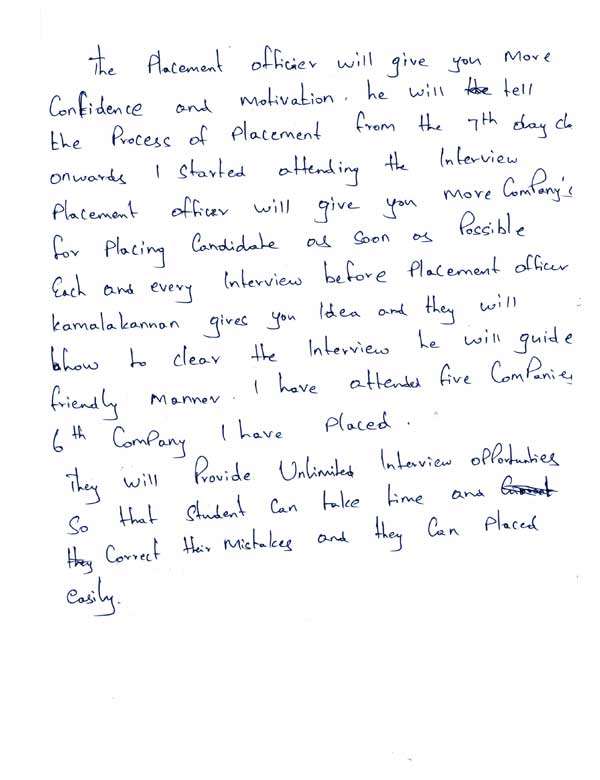 The Placement officier will give you More
Confidence and motivation. he will the tell
the Process of Placement from the 7th day
onwards I started attending the Interview
Placement officer will give you more Company's
for Placing Candidate as soon as Possible
Each and every Interview before Placement officer
kamalakannan gives you Idea and they will
how to clear the Interview he will guide
friendly manner. I have attended five Companies
6th Company I have Placed.
They will Provide Unlimited Interview opportunities
So that student Can take time and
they Correct their Mistakes and they Can Placed
easily.